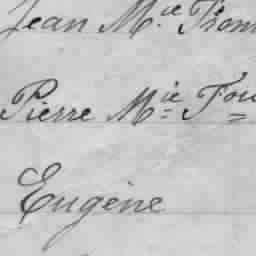 Jean M.ie
Pierre M.ie Fou
Eugène